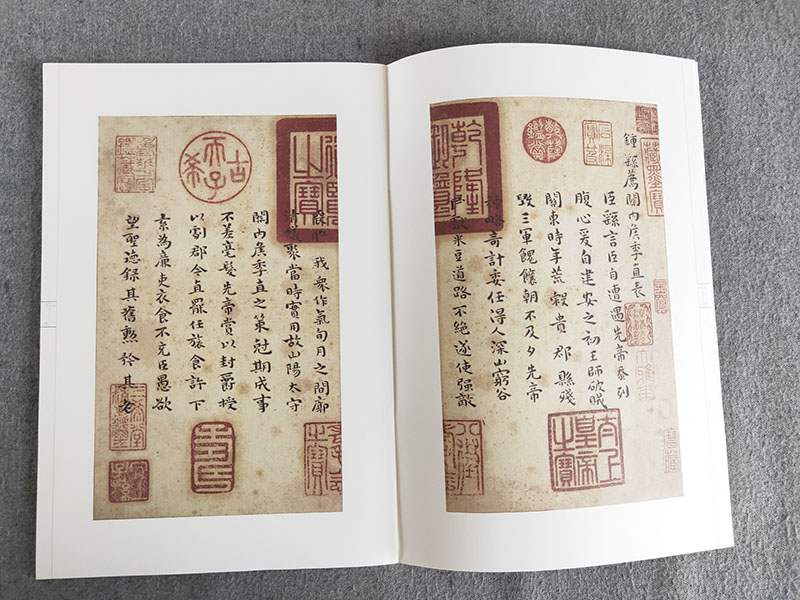 鍾繇薦關內侯季直表
臣繇言臣自遭遇先帝忝列
腹心爰自建安之初王師破賊
關東時年荒穀貴郡縣殘
毀三軍餽饟朝不及夕先帝
神略奇計委任得人深山窮谷
米豆道路不絕遂使強敵
乾隆
乾隆鑑賞
太上皇帝之寶
我衆作氣旬月之間廓
清蟻聚當時實用故山陽太守
關內侯季直之策尅期成事
不差毫髮先帝賞以封爵授
以劇郡今直罷任旅食許下
素為廉吏衣食不充臣愚欲
望聖德錄其舊勳矜其老
古希天子
覽之寶
三希堂精鑑璽
宜子孫